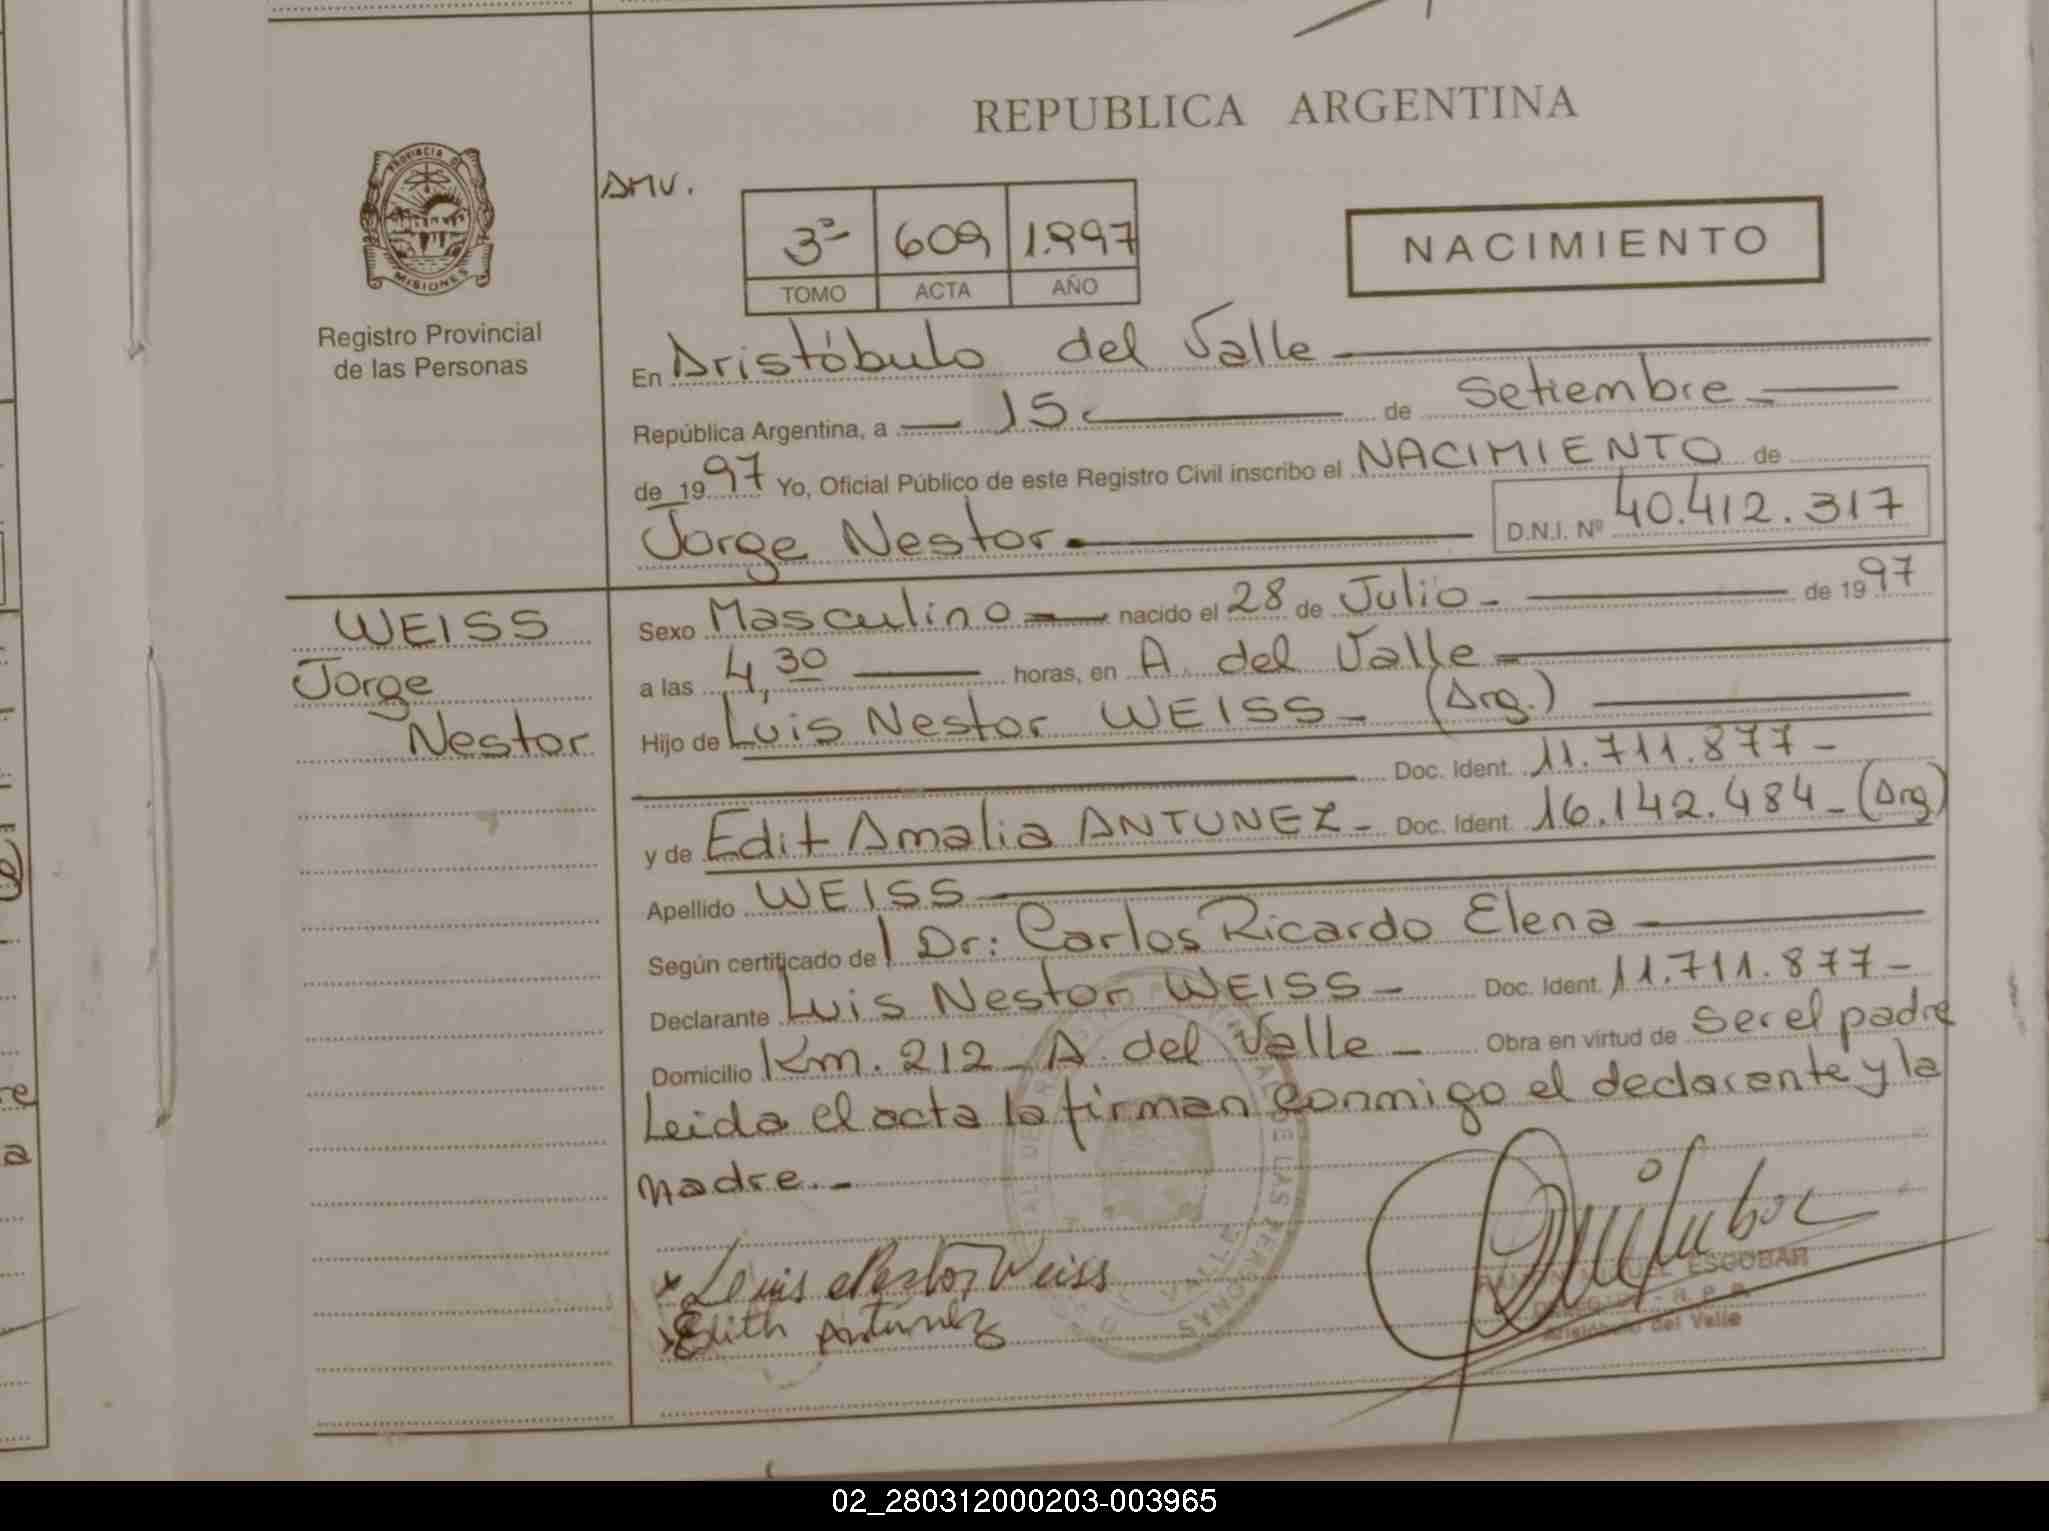 REPUBLICA ARGENTINA
PROVINCIA D
MISIONES
Registro Provincial
de las Personas
AMV.
3º 609 1.997
TOMO ACTA AÑO
NACIMIENTO
En Aristóbulo del Valle
República Argentina, a 15 de Setiembre
de 1997 Yo, Oficial Público de este Registro Civil inscribo el NACIMIENTO de
Jorge Nestor D.N.I. Nº 40.412.317
WEISS
Jorge
Nestor
Sexo Masculino nacido el 28 de Julio de 1997
a las 4,30 horas, en A. del Valle
Hijo de Luis Nestor WEISS (Arg.)
Doc. Ident. 11.711.877
y de Edit Amalia ANTUNEZ Doc. Ident. 16.142.484 (Arg)
Apellido WEISS
Según certificado del Dr: Carlos Ricardo Elena
Declarante Luis Nestor WEISS Doc. Ident. 11.711.877
Domicilio Km. 212 A. del Valle Obra en virtud de ser el padre
Leida el acta la firman conmigo el declarante y la
madre.
Luis Nestor Weiss
Edith Antunez
ESCOBAR
Aristóbulo del Valle
02_280312000203-003965